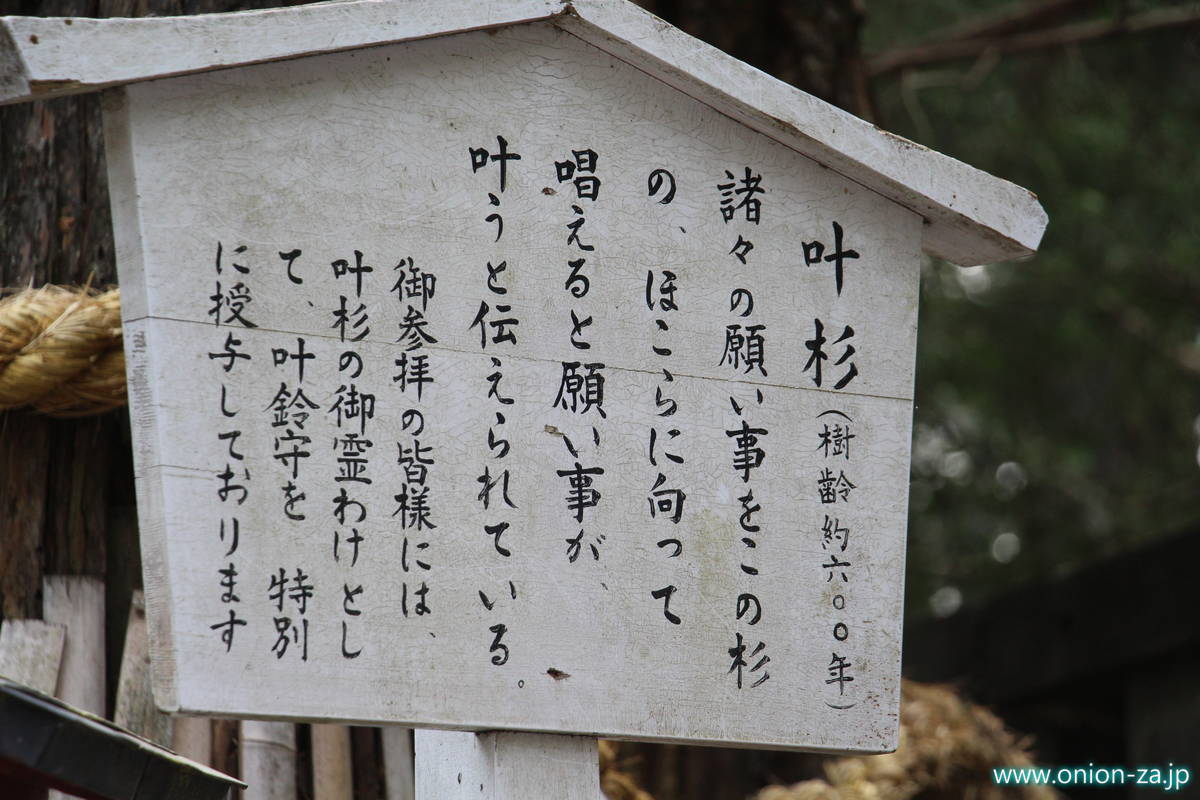 叶杉(樹齢約六〇〇年)
諸々の願い事をこの杉
の、ほこらに向って
唱えると願い事が、
叶うと伝えられている。
御参拝の皆様には、
叶杉の御霊わけとし
て、叶鈴守を 特別
に授与しております
www.onion-za.jp